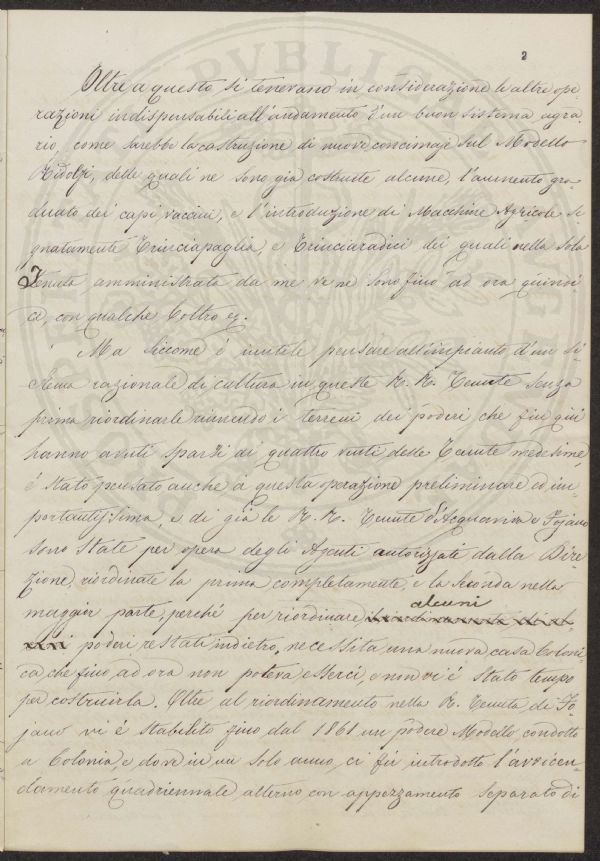 2
Oltre a questo si tenevano in considerazione le altre ope-
razioni indispensabili all'andamento d'un buon sistema agra-
rio, come sarebbe la costruzione di nuove concimaje sul Modello
Ridolfi, delle quali ne sono già costruite alcune, l'aumento gra-
duato dei capi vaccini, e l'introduzione di Macchine Agricole se
gnatamente Trinciapaglia, e Trinciaradici dei quali nella sola
Tenuta amministrata da me ve ne sono fino ad ora quindi-
ci, con qualche Coltro
Ma siccome è inutile pensare all'impianto d'un si-
stema razionale di cultura in queste R. R. Tenute senza
prima riordinarle riunendo i terreni dei poderi, che fin quì
hanno avuti sparsi ai quattro venti delle Tenute medesime,
è stato pensato anche a questa operazione preliminare ed im-
portantissima, e di già le R. R. Tenute d'Acquaviva e Fojano
sono state per opera degli Agenti autorizzati dalla Dire
zione riordinate la prima completamente e la seconda nella
maggior parte, perchè per riordinare alcuni
poderi restati indietro, necessita una nuova casa Coloni-
ca che fino ad ora non poteva esserci, e non vi è stato tempo
per costruirla. Oltre al riordinamento nella R. Tenuta di Fo-
jano vi è stabilito fino dal 1861 un podere Modello condotto
a Colonia e dove in un solo anno, ci fù introdotto l'avvicen-
damento quadriennale alterno con appezzamento separato di